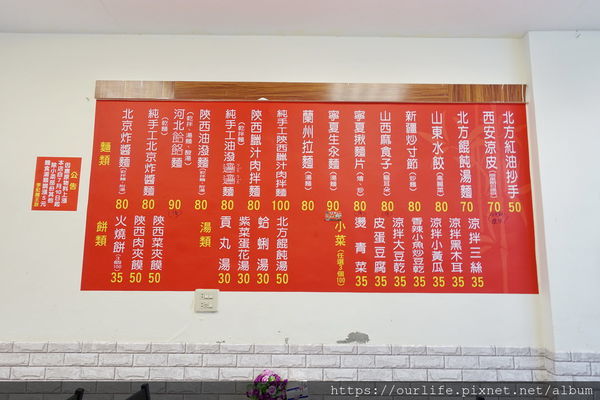 北方紅油抄手 50
西安涼皮 70
北方餛飩湯麵 70
山東水餃 (高麗菜) 80
新疆炒寸節 (炒麵) 80
山西麻食子 80
寧夏揪麵片 (燴、炒) 80
寧夏生汆麵 (湯麵) 90
蘭州拉麵 (湯麵) 80
純手工陝西臘汁肉拌麵 100
陝西臘汁肉拌麵 (乾拌麵) 80
純手工油潑𰻞𰻞麵 (乾拌麵) 80
陝西油潑麵 80
河北餄餎麵 (乾拌、湯麵、酸湯) 90
純手工北京炸醬麵 (乾麵) 80
北京炸醬麵 80
麵類
涼拌三絲 35
涼拌黑木耳 35
涼拌小黃瓜 35
香辣小魚炒豆乾 35
涼拌大豆乾 35
皮蛋豆腐 35
燙青菜 35
小菜 (任選3個100)
北方餛飩湯 50
蛤蜊湯 30
紫菜蛋花湯 30
貢丸湯 30
湯類
陝西菜夾饃 50
陝西肉夾饃 50
火燒餅 35
餅類
公告
https://ourlife.pixnet.net/album